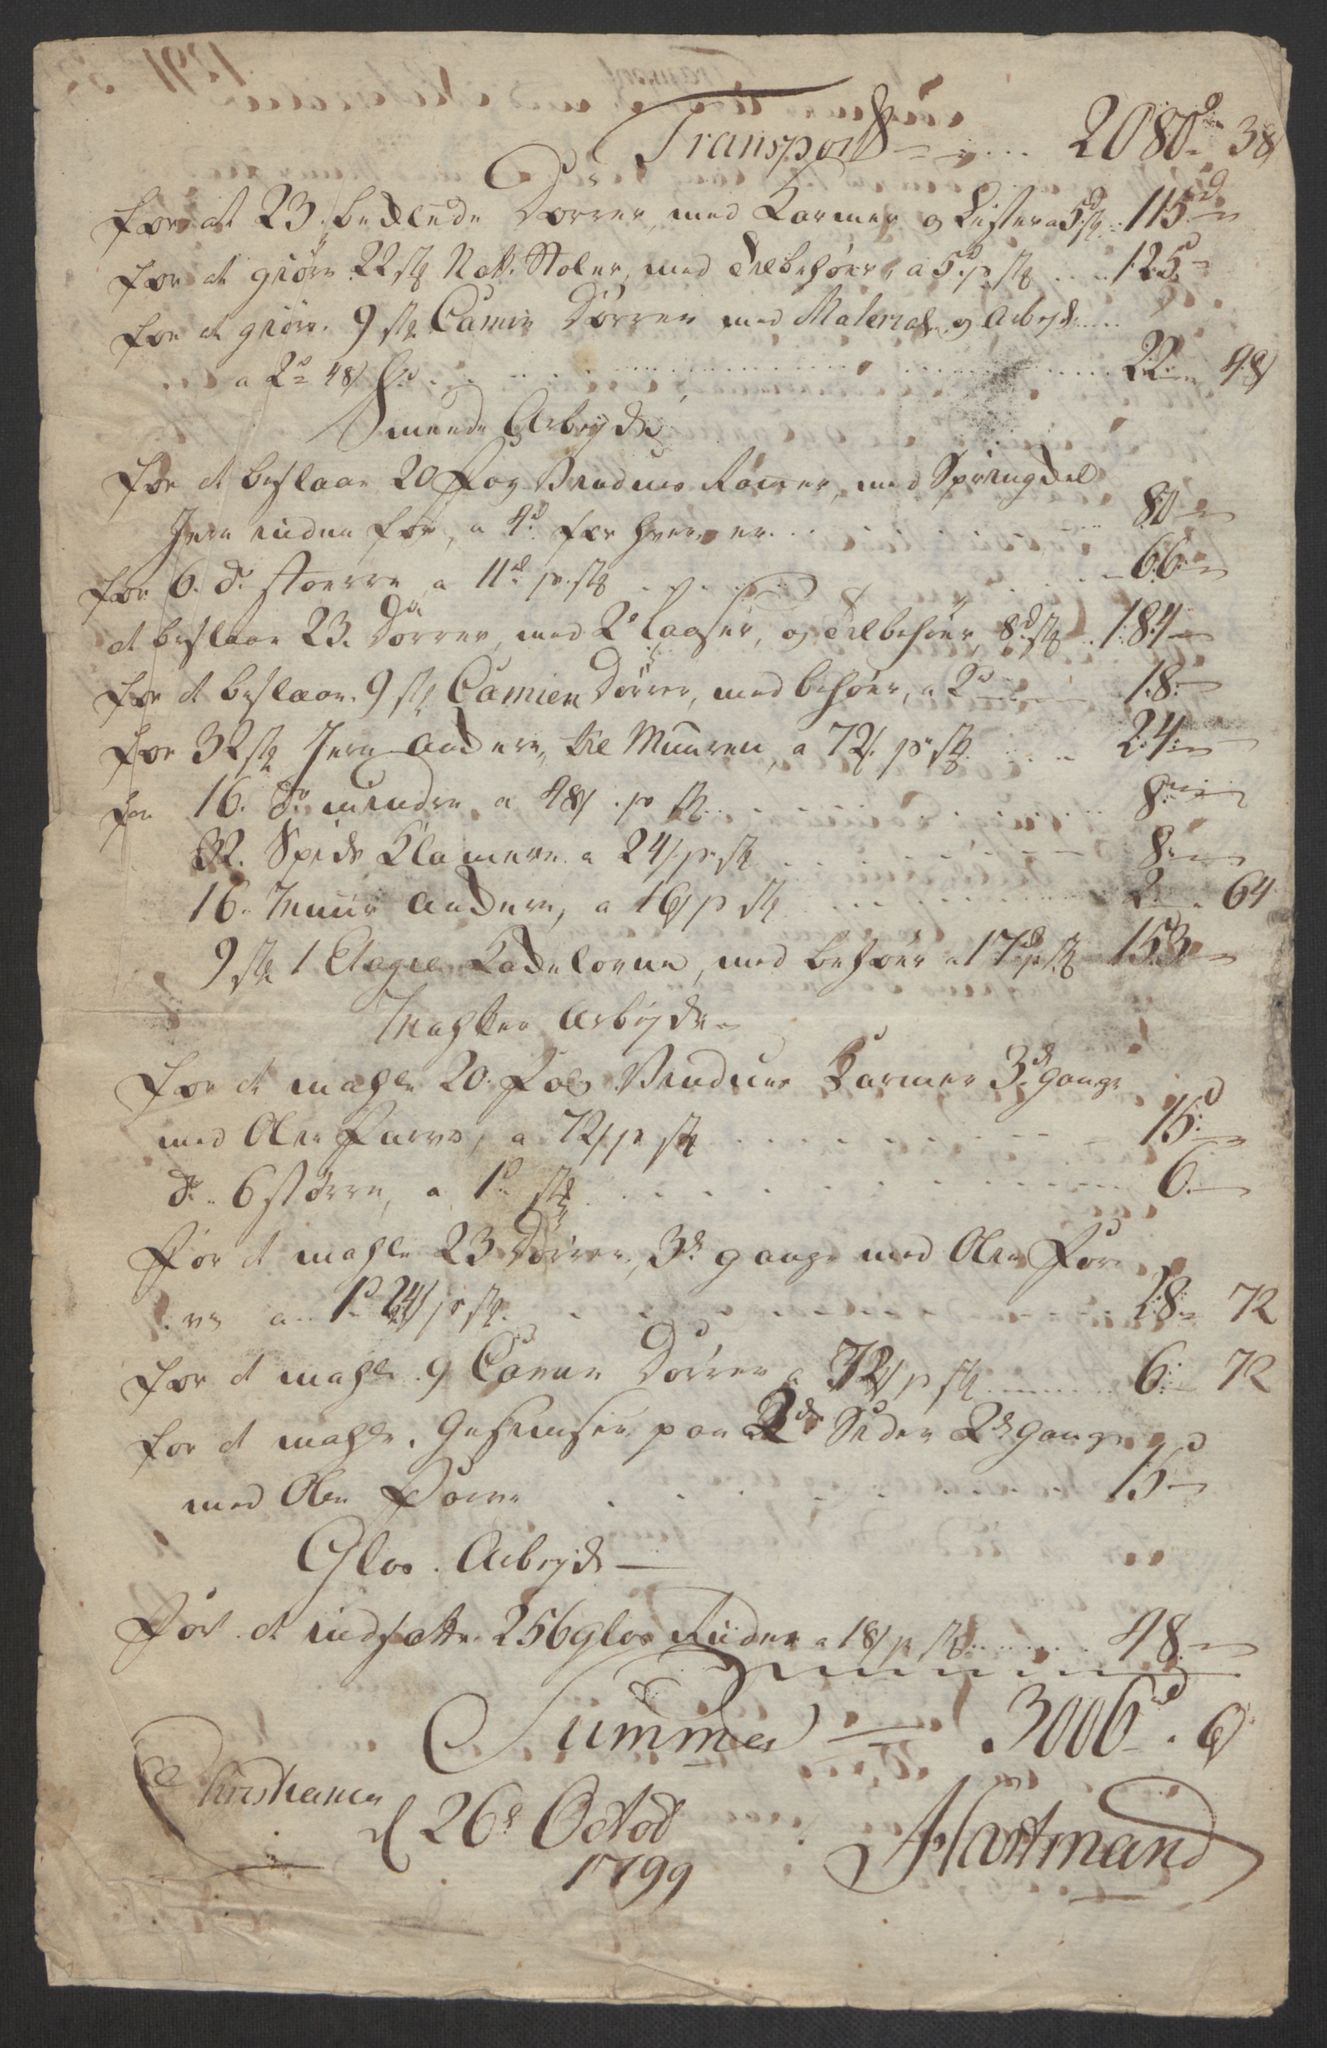 Transport 2080 d 38 s
for at 23 beklede Dørrer, med Karmer og Lister a 5 d st. 115 d
for at giøre 22 stk Natt Stoler, med Tilbehøer a 5 d p stk 125
for at giøre 9 stk Camin Dørrer med Material og Arbejde
a 2 d 48 s 22 48 s
Smeede Arbejde
for at beslaae 20 Fag Vinduers Ramer, med
Jern inden for, a 4 d for hver er 80
for 6 do støerre, a 11 d p stk 66
at beslaae 23 Dørrer, med 2 Laaser, og Tilbehøer 8 d stk 184
for at beslaae 9 stk Camien Dørrer, med behøer, a 2 d 18
for 32 stk Jern Andere, til Muuren, a 72 s p stk 24
for 16 do mindre a 48 s p stk 8
32 Klamere a 24 s p stk 8
16 Andere, a 16 s p stk 2 64
9 stk 1 Etagie Kackelovne, med behøer a 17 d p stk 153
Arbejde
for at mahle 20 Fag Vinduer Karmer 3 de gange
med Olie Farve, a 72 s p stk 15 d
do 6 større, a 1 d stk 6
For at mahle 23 Dørrer, 3 de gange med Olie Far
ve a 1 d 24 s p stk 28 72
for at mahle 9 Camin Dørrer a 72 s p stk 6 72
for at mahle Gesimser paa 2 de Sider 2 de gange
med Olie Farve 15 d
Glas Arbejde
For at indsætte 256 glas Ruder a 18 s p stk 48
Summa 3006 d 6 s
Christiania
d 26 de Octob
1799
Hartmand